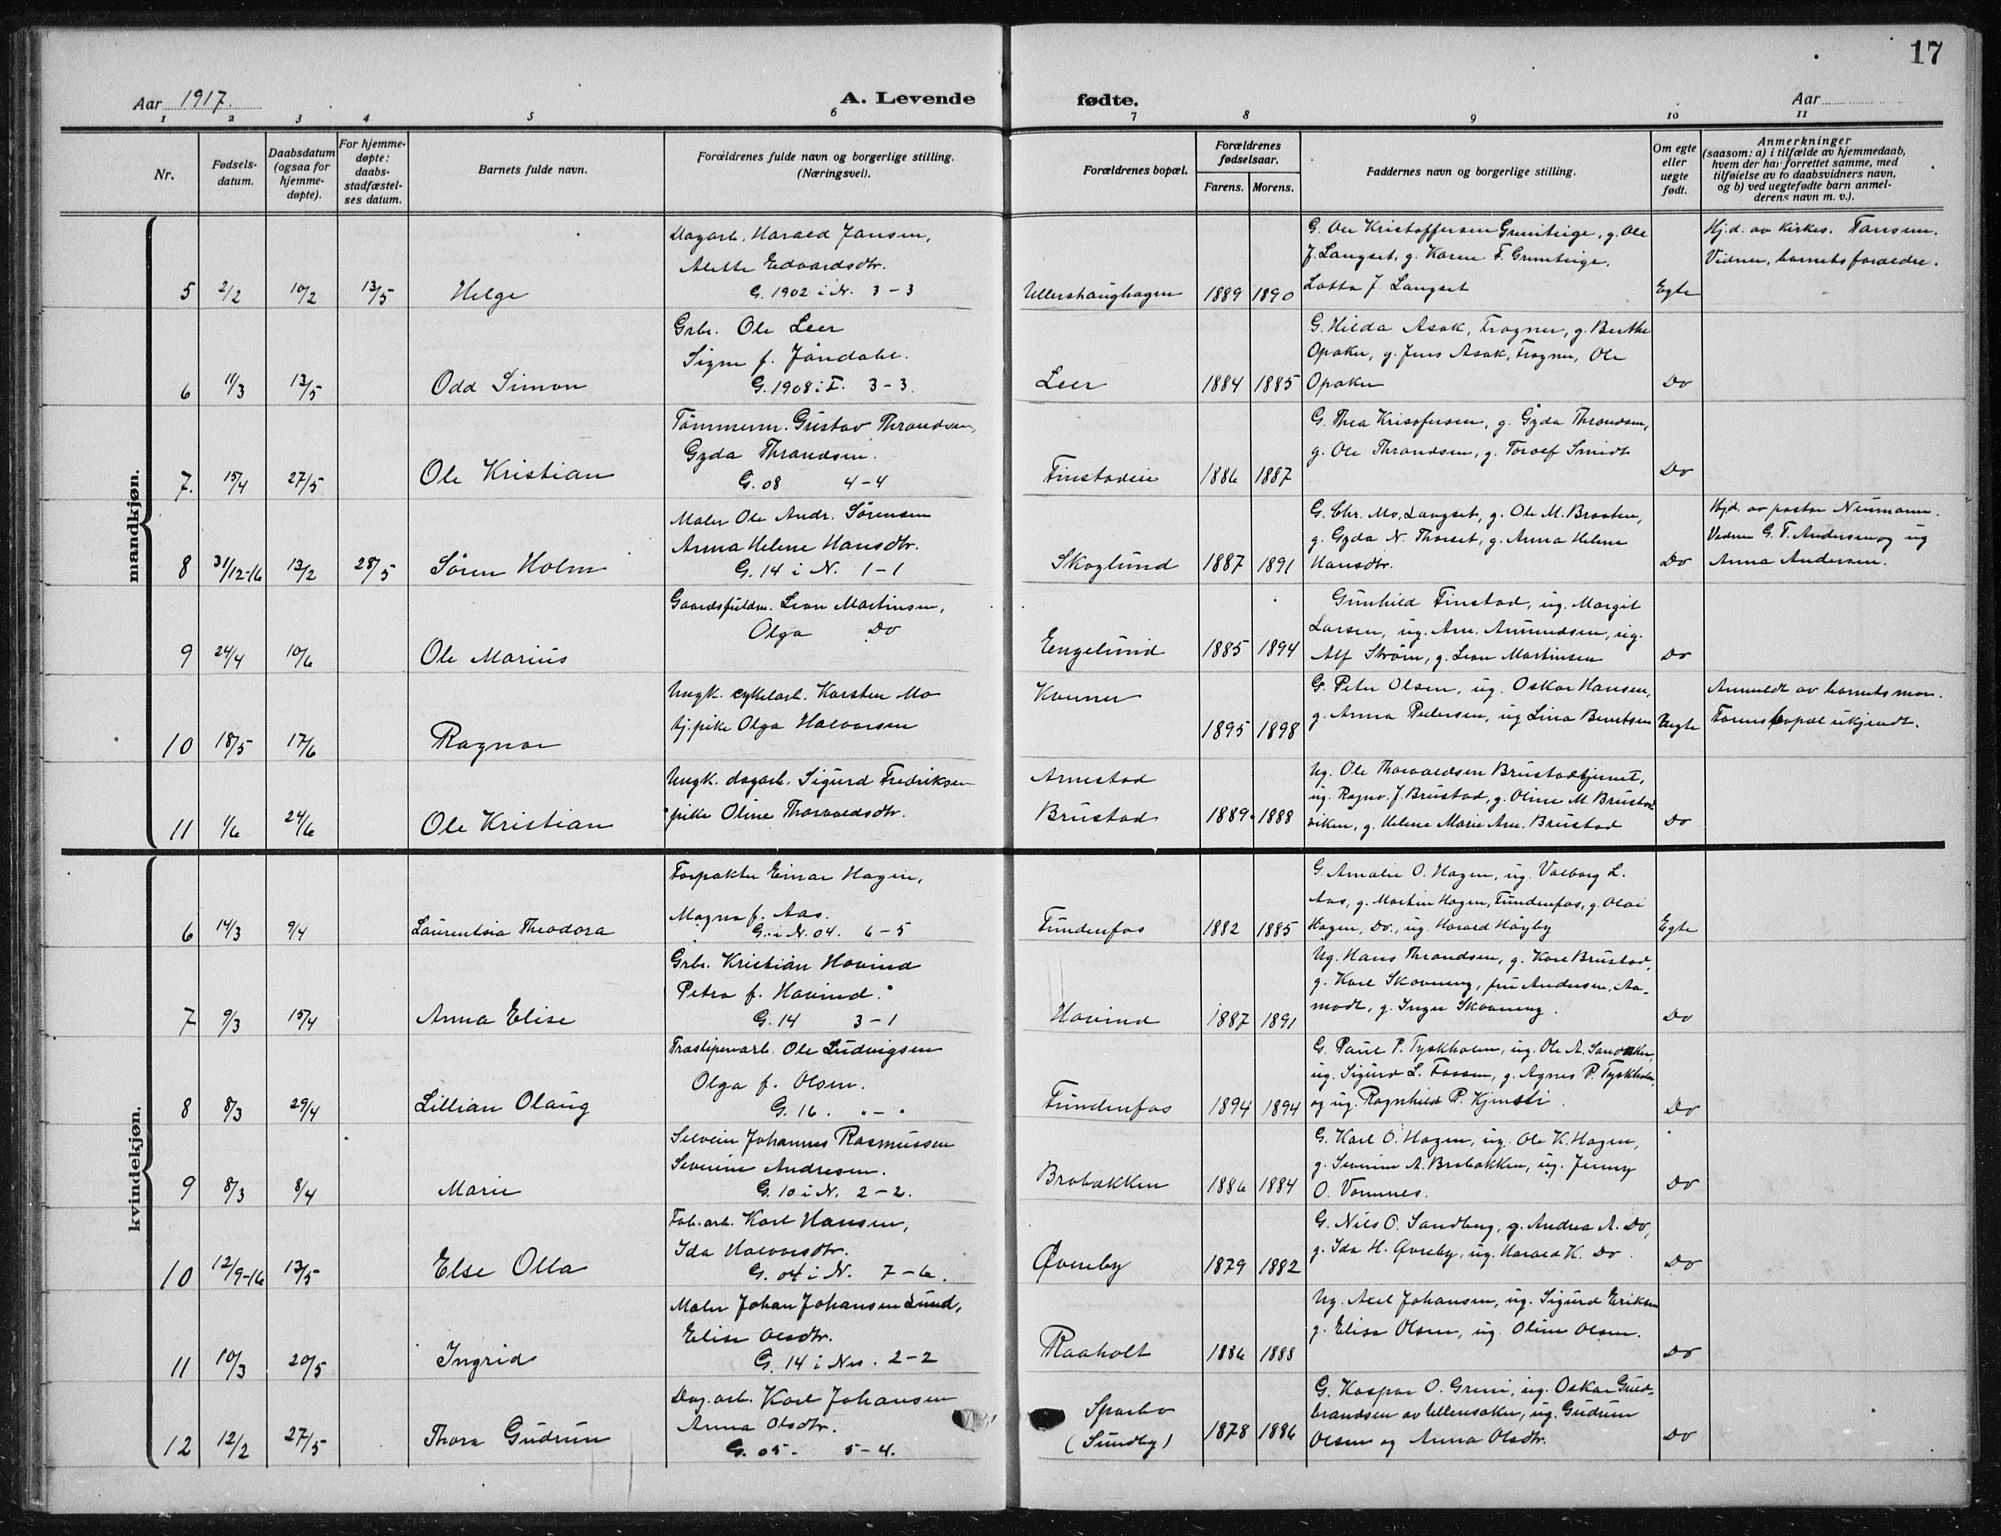 17
Aar 1917.
A. Levende
fødte.
Aar
1 2 3 4 5 6 7 8 9 10 11
Nr.
Fødsels-
datum.
Daabsdatum
(ogsaa for
hjemme-
døpte).
For hjemme-
døpte:
daabs-
stadfæstel-
ses datum.
Barnets fulde navn.
Forældrenes fulde navn og borgerlige stilling.
(Næringsvei).
Forældrenes bopæl.
Forældrenes
fødselsaar.
Farens. Morens.
Faddernes navn og borgerlige stilling.
Om egte
eller
uegte
født.
Anmerkninger
(saasom: a) i tilfælde av hjemmedaab,
hvem der har forrettet samme, med
tilføielse av to daabsvidners navn,
og b) ved uegtefødte barn anmel-
derens navn m. v.).
mandkjøn.
Dagarb. Harald Jansen,
Alette Edvardsdtr.
5 2/2 10/2 13/5 Helge G. 1902 i N. 3-3
Ullershaughagen 1889 1890
G. Ole Kristoffersen Grimteige, g. Ole
J. Langset, g. Karen F. Grimteige.
Lotta J. Langset
Egte
Hj.d. av kirkes. Fansum.
Vidner, barnets foraldre.
Grbr. Ole Leer
Signe f. Jøndahl.
6 11/3 13/5 Odd Simon G. 1908 i F. 3-3.
Leer 1884 1885
G. Hilda Asak, Frogner, g. Berthe
Opaker, g. Jens Asak, Frogner, Ole
Opaker
Do
Tømmerm. Gustav Thrandsen,
Gyda Thrandsen.
7. 15/4 27/5 Ole Kristian G. 08 4-4
Finstadeie 1886 1887
G. Thea Kristofersen, g. Gyda Thrandsen,
g. Ole Thrandsen, g. Toralf Smidt
Do
Maler Ole Andr. Sørensen
Anna Helene Hansdtr.
8 31/12-16 13/2 28/5 Søren Holm G. 14 i N. 1-1
Skoglund 1887 1891
G. Chr. Mo, Langset, g. Ole M. Braaten,
g. Gyda N. Thorset, g. Anna Helene
Hansdtr.
Do
Hj.d. av pastor Neumann.
Vidner G. T. Andersen og
Anna Andersen.
Gaardsfuldm. Leon Martinsen,
Olga Do
9 24/4 10/6 Ole Marius
Engelund 1885 1894
Gunhild Finstad, ug. Margit
Larsen, ug. Arn. Amundsen, ug.
Alf Strøm, g. Leon Martinsen
Do
Ungk. cykelarb. Karsten Mo
tj. pike Olga Halvorsen
10 18/5 17/6 Ragnar
1895 1898
G. Peter Olsen, ug. Oskar Hansen,
g. Anna Pedersen, ug Lina Berntsen
Uegte
Anmeldt av barnets mor.
Farens bopæl ukjendt.
Ungk. dagarb. Sigurd Fredriksen
pike Oline Thorvaldsdtr.
11 1/6 24/6 Ole Kristian
Arnestad
Brustad 1889. 1888
Ug. Ole Thorvaldsen Brustadtjernet,
ug. Ragnv. J. Brustad, g. Oline M. Brustad-
viken, g. Helene Marie Arn. Brustad
Do
kvindekjøn.
Forpakter Einar Hagen,
Magna f. Aas.
6 14/3 9/4 Laurentsia Theodora G. i N. 04. 6-5
Fundenfos 1882 1885
G. Amalie O. Hagen, ug. Valborg L.
Aas, g. Martin Hagen, Fundenfos, g. Olai
Hagen, Do., ug. Harald Høyby
Egte
Grbr. Kristian Hovind
Petra f. Hovind.
7 9/3 15/4 Anna Elise G. 14 3-1
Hovind 1887 1891
Ug. Hans Thrandsen, g. Kare Brustad,
g. Karl Skovseng, fru Andersen, Aa-
modt, g. Inger Skovseng.
Do
Træsliperiarb. Ole Ludvigsen
Olga f. Olsen.
8 8/3 29/4 Lillian Olaug G. 16. " - "
Fundenfos 1894 1894
G. Paul P. Tyskholm, ug. Ole A. Sandaker,
ug. Sigurd L. Fossen, g. Agnes P. Tyskholm,
og ug. Ragnhild P. Kjensli.
Do
Selveier Johannes Rasmussen
Severine Andresen.
9 8/3 8/4 Marie G. 10 i N. 2-2.
Brobakken 1886 1884
G. Karl O. Hagen, ug. Ole K. Hagen,
g. Severine A. Brobakken, ug. Jenny
O. Vomnes.
Do
Fab.arb. Karl Hansen,
Ida Halvorsdtr.
10 12/9-16 13/5 Else Olla G. 04 i N. 7-6.
Øvreby 1879 1882
G. Nils O. Sandberg, g. Andrea A. Do,
g. Ida H. Øvreby, ug. Harald K. Do.
Do
Maler Johan Johansen Lund,
Elise Olsdtr.
11 10/3 20/5 Ingrid G. 14 i Nes. 2-2
Raaholt 1886 1888
Ug. Axel Johansen, ug. Sigurd Eriksen
g. Elise Olsen, ug. Oline Olsen.
Do
Dag.arb. Karl Johansen
Anna Olsdtr.
12 12/2 27/5 Thora Gudrun G. 05. 5-4.
Sparbo
(Sundby) 1878 1886
G. Kaspar O. Greni, ug. Oskar Guld-
brandsen av Ullensaker, ug. Gudrun
Olsen og Anna Olsdtr.
Do